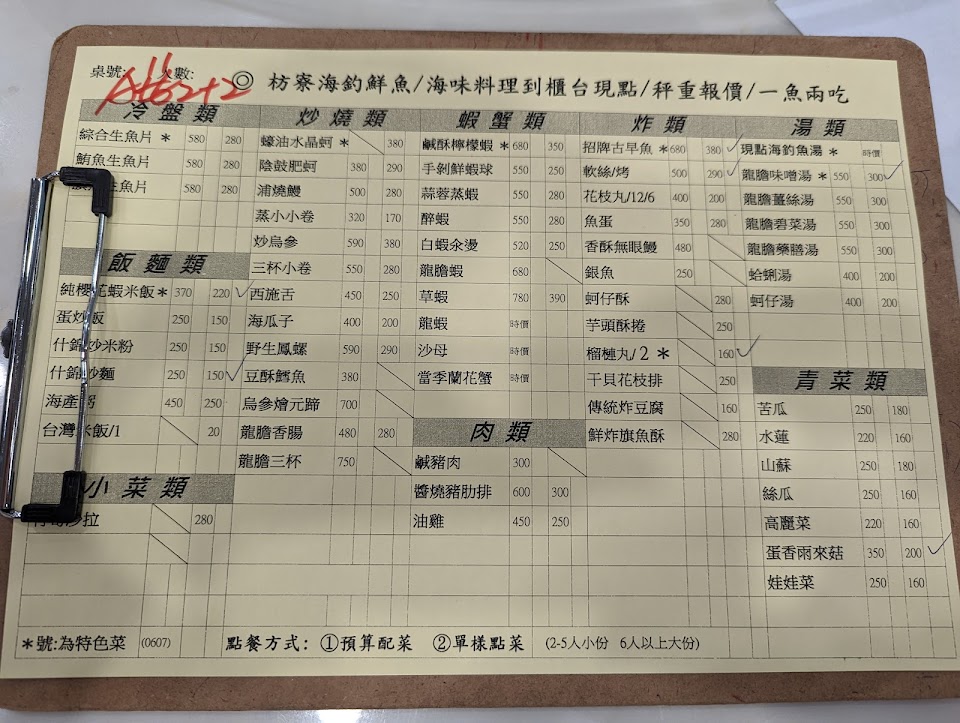 桌號: 人數: ◎ 枋寮海釣鮮魚/海味料理到櫃台現點/秤重報價/一魚兩吃
冷盤類
綜合生魚片 * 580 280
鮪魚生魚片 580 280
生魚片 580 280
飯麵類
純櫻花蝦米飯 * 370 220
蛋炒飯 250 150
什錦炒米粉 250 150
什錦炒麵 250 150
海產粥 450 250
台灣米飯/1 20
小菜類
沙拉 280
炒燒類
蠔油水晶蚵 * 380
蔭鼓肥蚵 380 290
浦燒鰻 500 280
蒸小小卷 320 170
炒烏參 590 380
三杯小卷 550 280
西施舌 450 250
海瓜子 400 200
野生鳳螺 590 290
豆酥鱈魚 380
烏參燴元蹄 700
龍膽香腸 480 280
龍膽三杯 750
蝦蟹類
鹹酥檸檬蝦 * 680 350
手剝鮮蝦球 550 280
蒜蓉蒸蝦 550 280
醉蝦 550 280
白蝦汆燙 520 250
龍膽蝦 680
草蝦 780 390
龍蝦 時價
沙母 時價
當季蘭花蟹 時價
肉類
鹹豬肉 300
醬燒豬肋排 600 300
油雞 450 250
炸類
招牌古早魚 * 680 380
軟絲/烤 500 290
花枝丸/12/6 400 200
魚蛋 350 280
香酥無眼鰻 480
銀魚 250
蚵仔酥 280
芋頭酥捲 250
榴槤丸/2 * 160
干貝花枝排 250
傳統炸豆腐 160
鮮炸旗魚酥 280
湯類
現點海釣魚湯 * 時價
龍膽味噌湯 * 550 300
龍膽薑絲湯 550 300
龍膽碧菜湯 550 300
龍膽藥膳湯 550 300
蛤蜊湯 400 200
蚵仔湯 400 200
青菜類
苦瓜 250 180
水蓮 220 160
山蘇 250 180
絲瓜 250 160
高麗菜 220 160
蛋香雨來菇 350 200
娃娃菜 250 160
*號:為特色菜 (0607) 點餐方式: ①預算配菜 ②單樣點菜 (2-5人小份 6人以上大份)